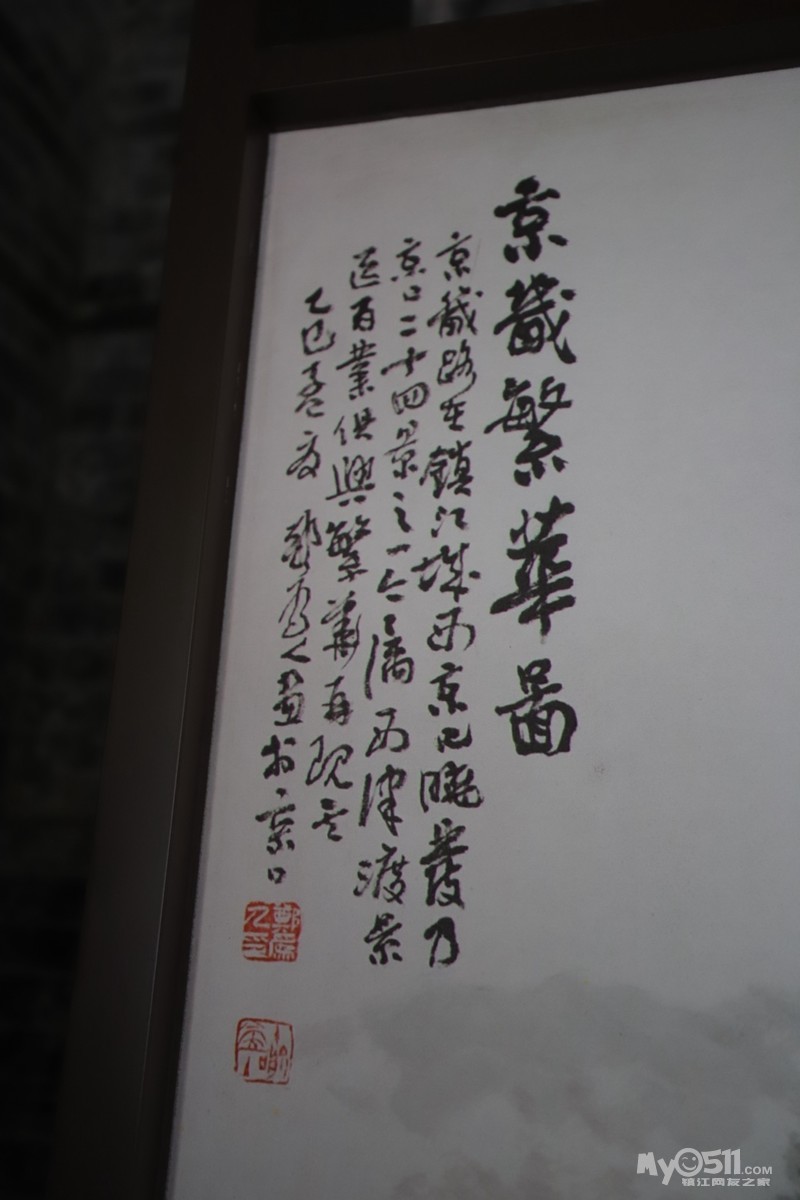 京畿繁華啚
京畿路在鎮江城西京口曉發乃
京口二十四景之一今之滿西津渡景
區百業俱興繁華再現也
乙巳孟夏鄭為人畫於京口
鄭為人印
My0511.com
镇江网友之家